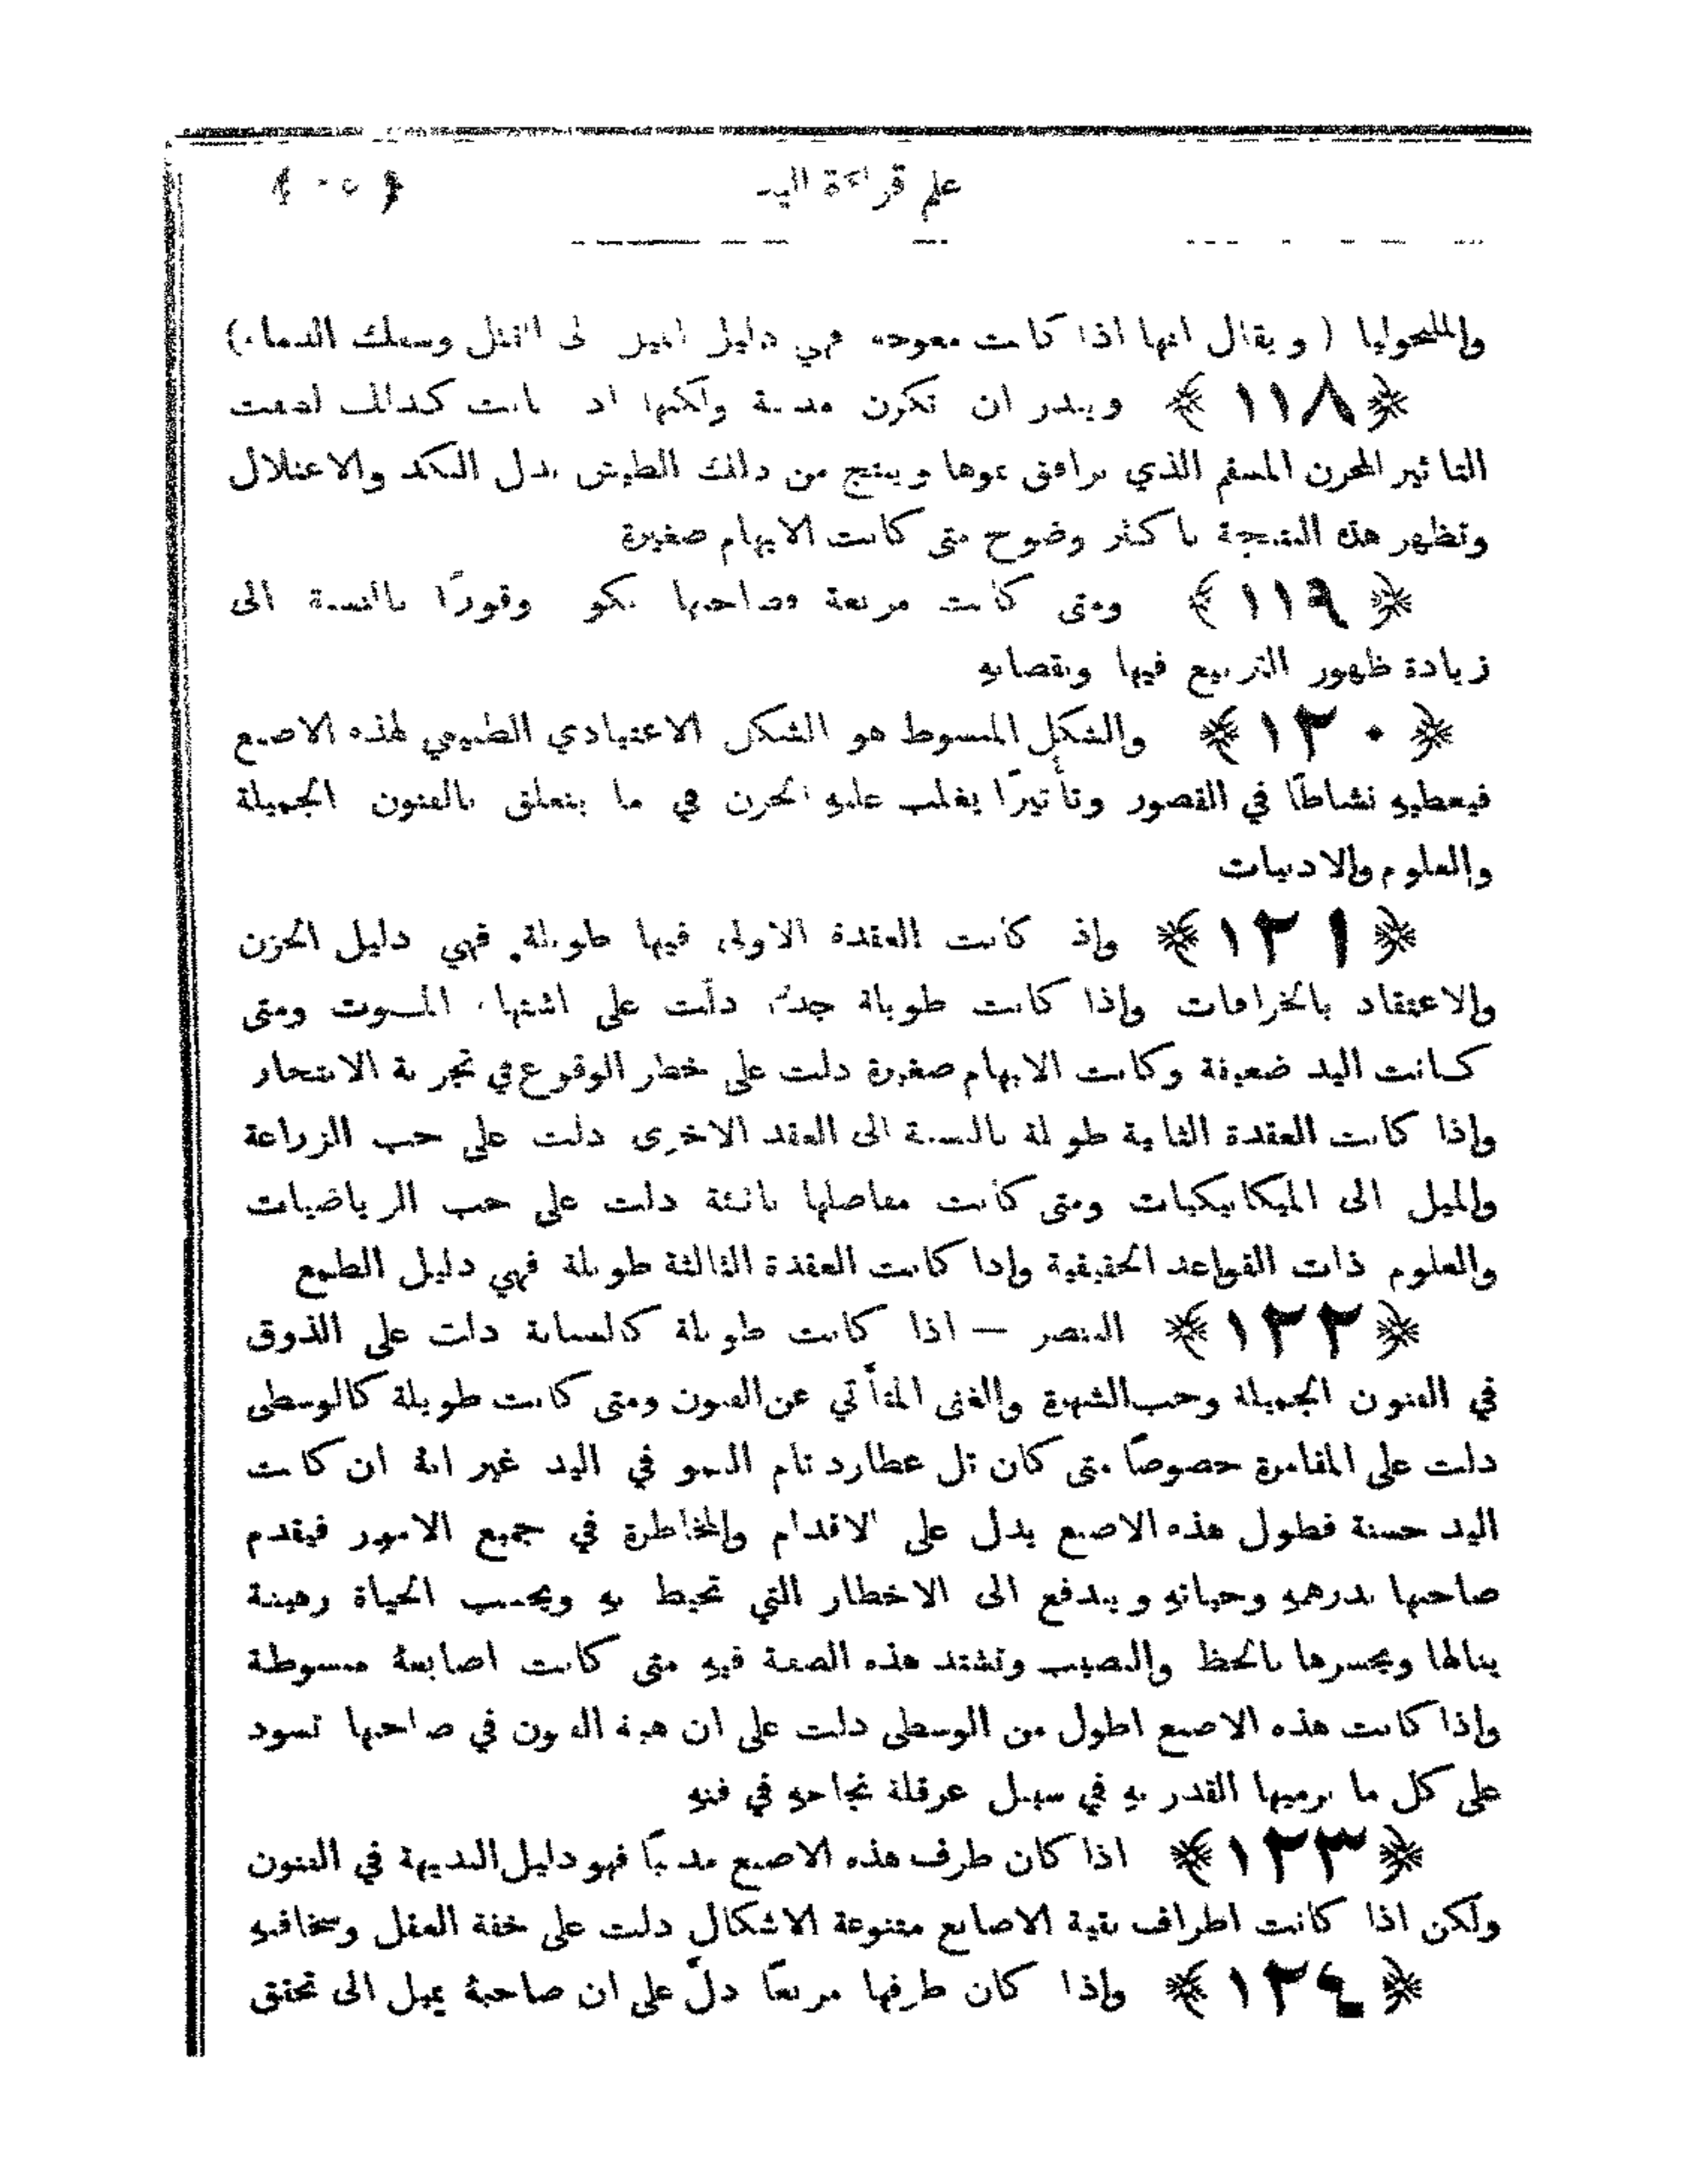 علم قراءة اليد ﴿ ٥٠ ﴾
( ويقال انها اذا كانت معوجه فهي دليل الميل الى القتل وسفك الدماء)
﴿١١٨﴾ ويندر ان تكون مدببة ولكنها اذا كانت كذلك
التاثير المحزن الذي يرافق نموها وينتج من ذلك الطيش بدل النكد والاعتلال
وتظهر هذه النتيجة باكثر وضوح متى كانت الابهام صغيرة
﴿١١٩﴾ ومتى كانت مربعة فصاحبها يكون وقورًا بالنسبة الى
زيادة ظهور التربيع فيها ونقصانه
﴿١٢٠﴾ والشكل المبسوط هو الشكل الاعتيادي الطبيعي لهذه الاصبع
فيعطيه نشاطًا في القصور وتأثيرًا يغلب عليه الحزن في ما يتعلق بالفنون الجميلة
والعلوم والادبيات
﴿١٢١﴾ واذ كانت العقدة الاولى فيها طويلة فهي دليل الحزن
والاعتقاد بالخرافات واذا كانت طويلة جدًّا دلّت على اشتهاء المـوت ومتى
كـانت اليد ضعيفة وكانت الابهام صغيرة دلت على خطر الوقوع في تجربة الانتحار
واذا كانت العقدة الثانية طويلة بالنسبة الى العقد الاخرى دلت على حب الزراعة
والميل الى الميكانيكيات ومتى كانت مفاصلها ناتئة دلت على حب الرياضيات
والعلوم ذات القواعد الحقيقية واذا كانت العقدة الثالثة طويلة فهي دليل الطمع
﴿١٢٢﴾ البنصر — اذا كانت طويلة كالسبابة دلت على الذوق
في الفنون الجميلة وحب الشهرة والغنى المتأتي عن الفنون ومتى كانت طويلة كالوسطى
دلت على المقامرة خصوصًا متى كان تل عطارد تام النمو في اليد غير انه ان كانت
اليد حسنة فطول هذه الاصبع يدل على الاقدام والمخاطرة في جميع الامور فيقدم
صاحبها بدرهمه وحياته ويندفع الى الاخطار التي تحيط به ويحسب الحياة رهينة
ينالها ويخسرها بالحظ والنصيب وتشتد هذه الصفة فيه متى كانت اصابعه مبسوطة
واذا كانت هذه الاصبع اطول من الوسطى دلت على ان هبة الفنون في صاحبها تسود
على كل ما يرميها القدر به في سبيل عرقلة نجاحه في فنه
﴿١٢٣﴾ اذا كان طرف هذه الاصبع مدببًا فهو دليل البديهة في الفنون
ولكن اذا كانت اطراف بقية الاصابع متنوعة الاشكال دلت على خفة العقل وسخافته
﴿١٢٤﴾ واذا كان طرفها مربعًا دلّ على ان صاحبهُ يميل الى تحقق